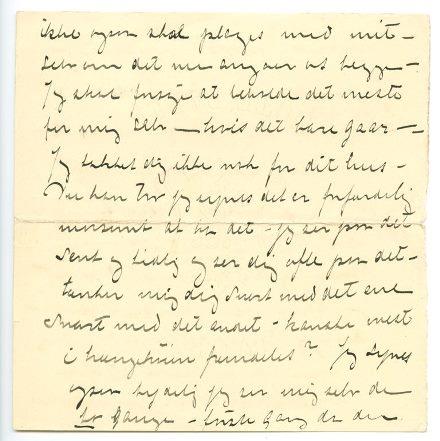 ikke ogsaa skal plages med mit –
selv om det nu angaar os begge –
Jeg skal forsøge at beholde det meste
for mig selv – hvis det bare gaar –
Jeg takket dig ikke nok for dit hus –
Du kan tro jeg synes det er forfærdelig
morsomt at ha det – jeg ser paa det
sent og tidlig og ser dig ofte paa det –
tænker mig dig snart med det ene
snart med det andet – kanske mest
i hængekøien fremdeles? Jeg synes
ogsaa tydelig jeg ser mig selv de
to Gange – første Gang da du